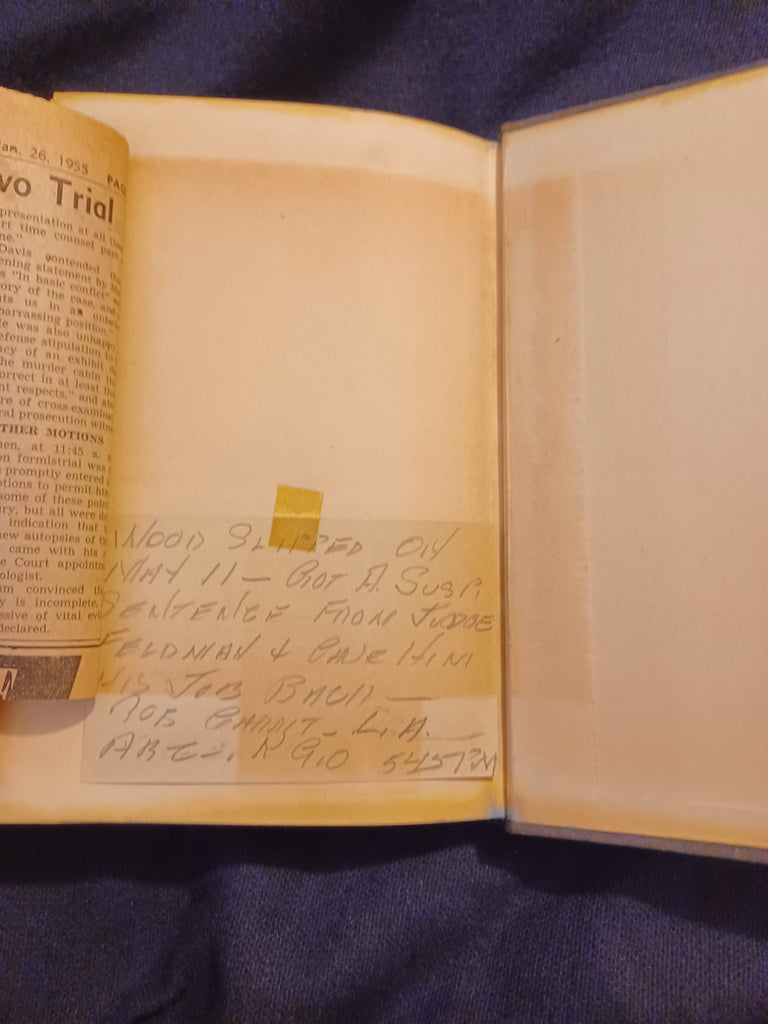 Jan. 26, 1955 PAG
vo Trial
presentation at all
rt time counsel part
ne."
Davis contended
ening statement by
s "in basic conflict"
ory of the case, and
ts us in a
barrassing position,"
He was also unhapp
efense stipulation to
acy of an exhibit
he murder cabin
orrect in at least
nt respects," and
re of cross-examin
ral prosecution witn
THER MOTIONS
hen, at 11:45 a.
on formistrial was
promptly entered
otions to permit his
some of these poin
ury, but all were de
indication that
new autopsies of
came with his
e Court appoint
ologist.
am convinced th
y is incomplete,
ssive of vital evi
declared.
WOOD SLIPPED ON
MAY 11 — GOT A SUSP.
SENTENCE FROM JUDGE
FELDMAN & GAVE HIM
HIS JOB BACK —
L.A.
545 PM